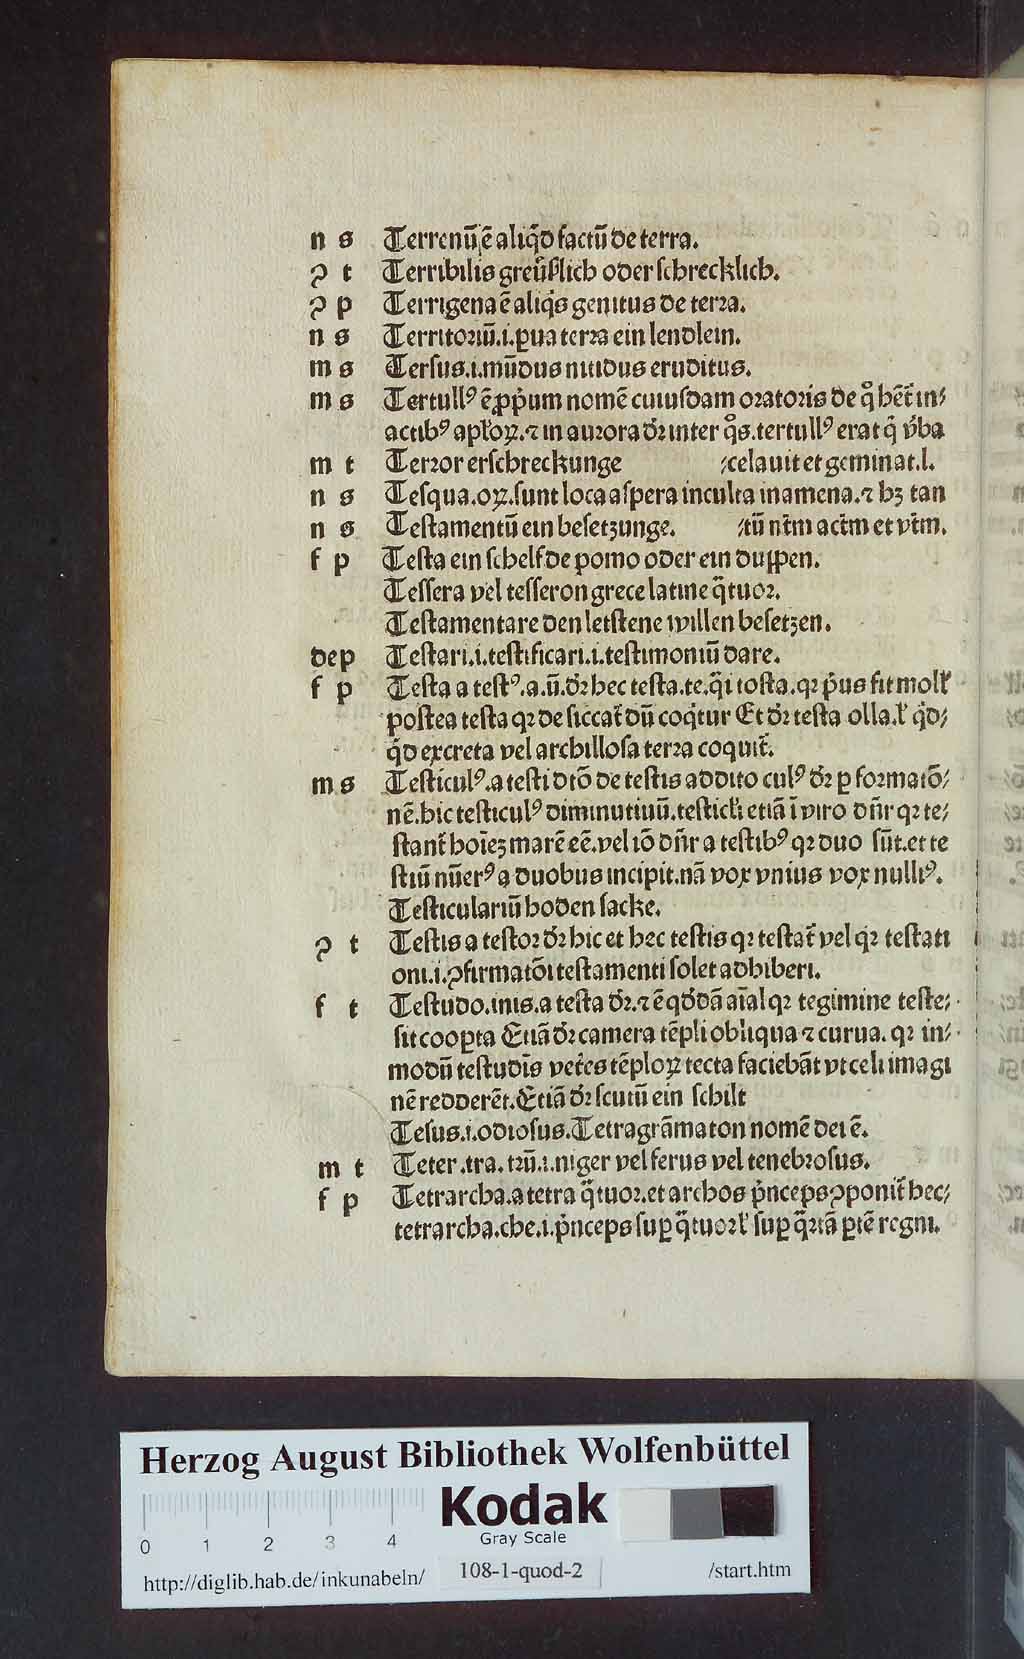 n s Terrenū ē aliq̄d factū de terra.
ꝯ t Terribilis greüſlich oder ſchrecklich.
ꝯ p Terrigena ē aliq̄s genitus de terra.
n s Territoriū.i.ꝑua terra ein lendlein.
m s Terſus.i.mūdus nitidus eruditus.
m s Tertullꝰ ē ꝓṗum nomē cuiuſdam oratoris de q̊ hēt̄ in⸗
actibꝰ apl̄oꝝ.⁊ in aurora dr̄ inter q̊s.tertullꝰ erat q̄ v̄ba
m t Terror erſchreckunge ⸗celauit et geminat.l.
n s Teſqua.oꝝ.ſunt loca aſpera inculta inamena.⁊ hꝫ tan
n s Teſtamentū ein beſetzunge. ⸗tū nt̄m act̄m et vt̄m.
f p Teſta ein ſchelf de pomo oder ein duppen.
Teſſera vel teſſeron grece latine q̄tuor.
Teſtamentare den letſtene willen beſetzen.
dep Teſtari.i.teſtificari.i.teſtimoniū dare.
f p Teſta a teſtꝰ.a.ū.dr̄ hec teſta.te.q̄ſi toſta.qꝛ p̄us fit moll'
poſtea teſta qꝛ de ſiccat̄ dū coq̄tur Et dr̄ teſta olla.l' q̄d⸗
q̄d ex creta vel archilloſa terra coquit̄.
m s Teſticulꝰ.a teſti dtō de teſtis addito culꝰ dr̄ ꝑ formatō⸗
nē.hic teſticulꝰ diminutiuū.teſticl̄i etiā ī viro dn̄r qꝛ te⸗
ſtant̄ hoīeꝫ marē eē.vel iō dn̄r a teſtibꝰ qꝛ duo ſūt.et te
ſtiū nūerꝰ a duobus incipit.nā vox vnius vox nulliꝰ.
Teſticulariū hoden ſacke.
ꝯ t Teſtis a teſtor dr̄ hic et hec teſtis qꝛ teſtat̄ vel qꝛ teſtati
oni.i.ꝯfirmatōi teſtamenti ſolet adhiberi.
f t Teſtudo.inis.a teſta dr̄.⁊ ē q̄ddā aīal qꝛ tegimine teſte⸗
ſit cooꝑta Etiā dr̄ camera tēpli obliqua ⁊ curua. qꝛ in⸗
modū teſtudīs vet̄es tēploꝝ tecta faciebāt vt celi imagi
nē redderēt.Etiā dr̄ ſcutū ein ſchilt
Teſus.i.odioſus.Tetragrāmaton nomē dei ē.
m t Teter.tra.trū.i.niger vel ferus vel tenebroſus.
f p Tetrarcha.a tetra q̄tuor.et archos p̄nceps ꝯponit̄ hec⸗
tetrarcha.che.i.p̄nceps ſuꝑ q̄tuor l' ſuꝑ q̄rtā ꝑtē regni.
Herzog August Bibliothek Wolfenbüttel
Kodak
Gray Scale
0 1 2 3 4
http://diglib.hab.de/inkunabeln/ 108-1-quod-2 /start.htm